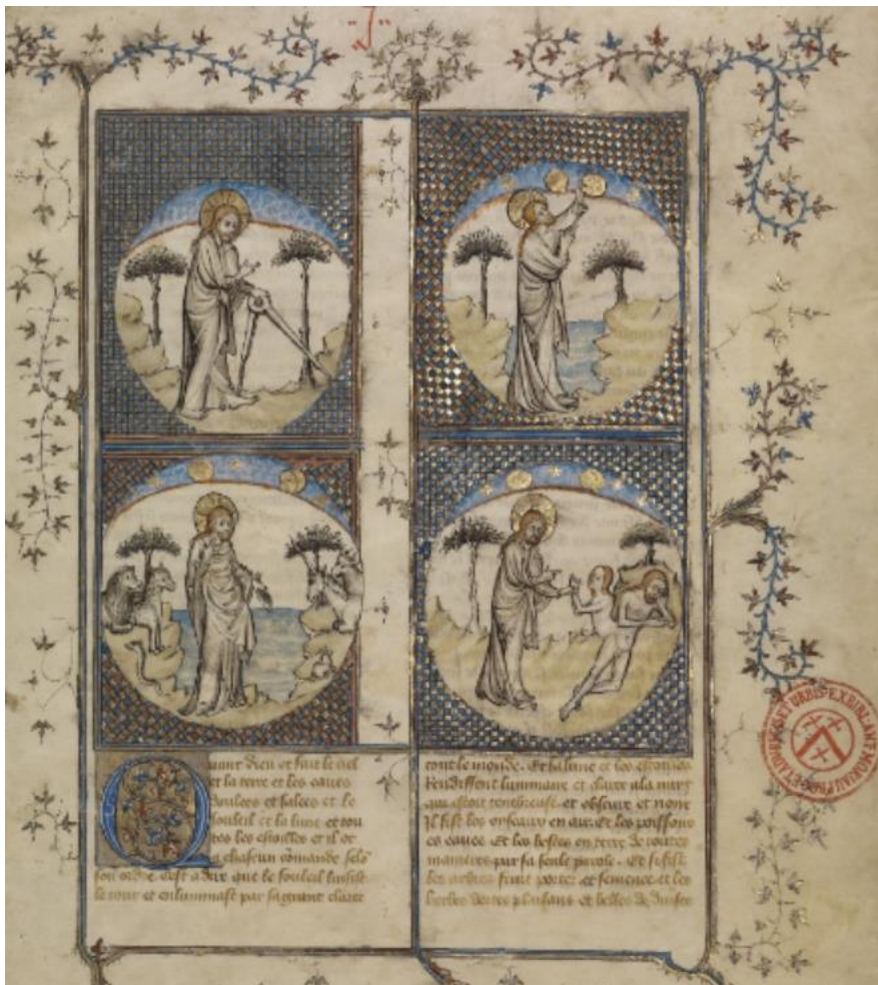 Quant dieu ot fait le ciel
et la terre et les eaues
doulces et salees et le
souleil et la lune et tou
tes les estoilles et il ot
a chascun cōmande selō
son ordre. Cest a dire que le souleil luisist
le iour et enluminast par sa grant clarte
tout le monde. Et la lune et les estoilles
rendissent luminaire et clarte a la nuit
qui estoit tenebreuse et obscure et noire
Il fist les oyseaux en air. Et les poissons
es eaues. Et les bestes en terre de toutes
manieres par sa seule parole. Et si fist
les arbres fruit porter et semence et les
herbes et belles de
EX BIBL. ANT. MORIAU ET URBIS